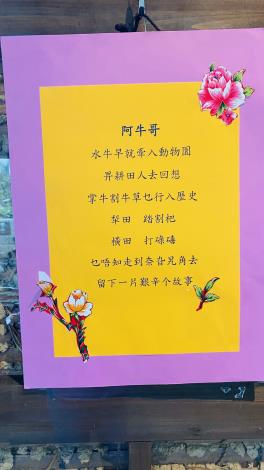 阿牛哥
水牛早就牽入動物園
畀耕田人去回想
掌牛割牛草乜行入歷史
犁田 踏割耙
橫田 打碌碡
乜唔知走到奈旮旯角去
留下一片艱辛个故事